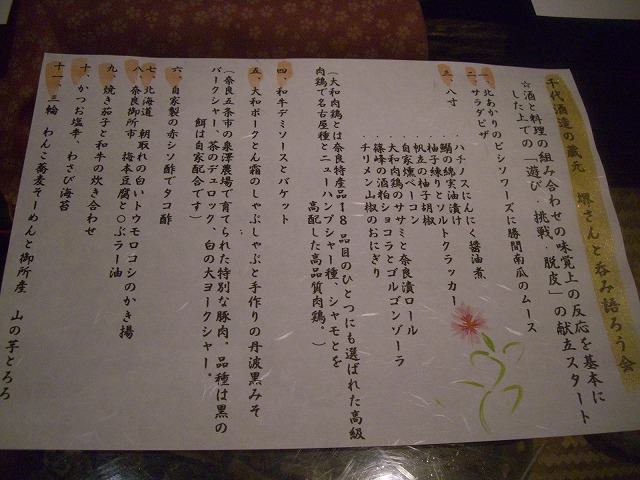 千代酒造の蔵元　堺さんと呑み語ろう会
☆酒と料理の組み合わせの味覚上の反応を基本に
した上での「遊び・挑戦・脱皮」の献立スタート
一、北あかりのビシソワーズに勝間南瓜のムース
二、サラダピザ
三、八寸
・ハチノスにんにく醤油煮
鰯の綿実油漬け
柚子練りとソルトクラッカー
・帆立の柚子胡椒
自家燻ベーコン
・大和肉鶏のササミと奈良漬ロール
・篠峰の酒粕ショコラとゴルゴンゾーラ
・チリメン山椒のおにぎり
（大和肉鶏とは奈良特産品18品目のひとつにも選ばれた高級
肉鶏で名古屋種とニューハンプシャー種、シャモとを
高配した高品質肉鶏。）
四、和牛デミソースとバケット
五、大和ポークとん霜のしゃぶしゃぶと手作りの丹波黒みそ
（奈良五条市の泉澤農場で育てられた特別な豚肉。品種は黒の
バークシャー、茶のデュロック、白の大ヨークシャー。
餌は自家配合です）
六、自家製の赤シソ酢でタコ酢
七、北海道　朝取れの白いトウモロコシのかき揚
八、奈良御所市　梅本豆腐と〇ぶラー油
九、焼き茄子と和牛の炊き合わせ
十、かつお塩辛、わさび海苔
十一、三輪　わんこ蕎麦そーめんと御所産　山の芋とろろ